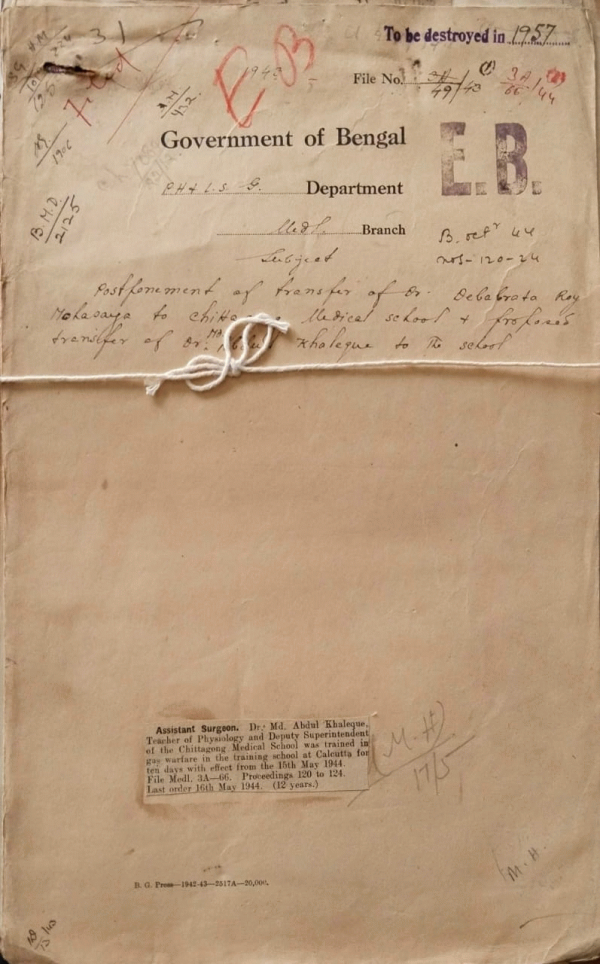 To be destroyed in 1957
31
Filed
EB
File No. 3A/49/43 (1) 3A/66/44
Government of Bengal
E.B.
PH & L.S.G. Department
Medl. Branch
B. Octr 44
Nos-120-24
Subject
Postponement of transfer of Dr. Debabrata Roy
Mohasaya to Medical school & proposed
transfer of Dr. Md. Khaleque to the school
B.M.D
2125
Assistant Surgeon. Dr. Md. Abdul Khaleque,
Teacher of Physiology and Deputy Superintendent
of the Chittagong Medical School was trained in
gas warfare in the training school at Calcutta for
ten days with effect from the 15th May 1944.
File Medl. 3A—66. Proceedings 120 to 124.
Last order 16th May 1944. (12 years.)
(M.H)
17/5
M.H.
B. G. Press—1942-43—2517A—20,000.